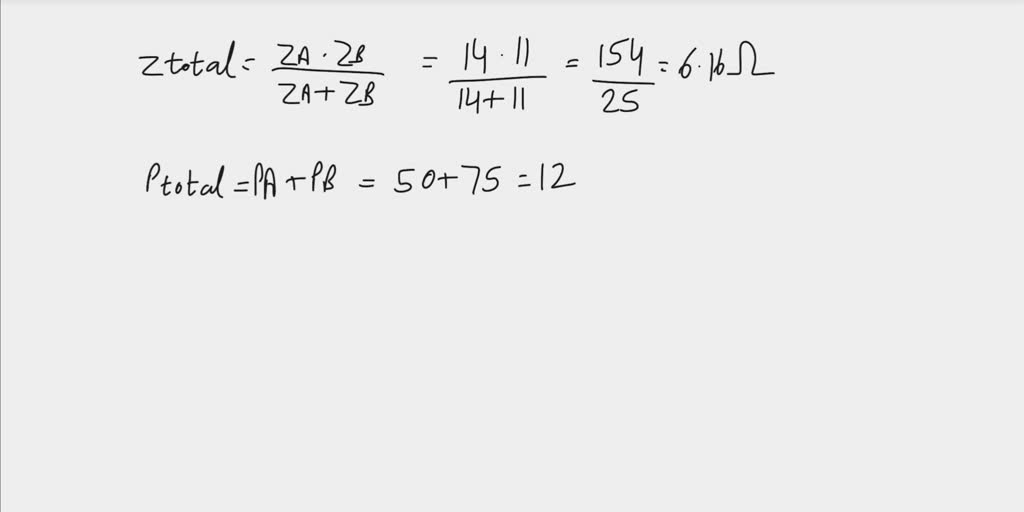 Ztotal = ZA · ZB / ZA + ZB = 14 · 11 / 14 + 11 = 154 / 25 = 6.16 Ω
Ptotal = PA + PB = 50 + 75 = 12